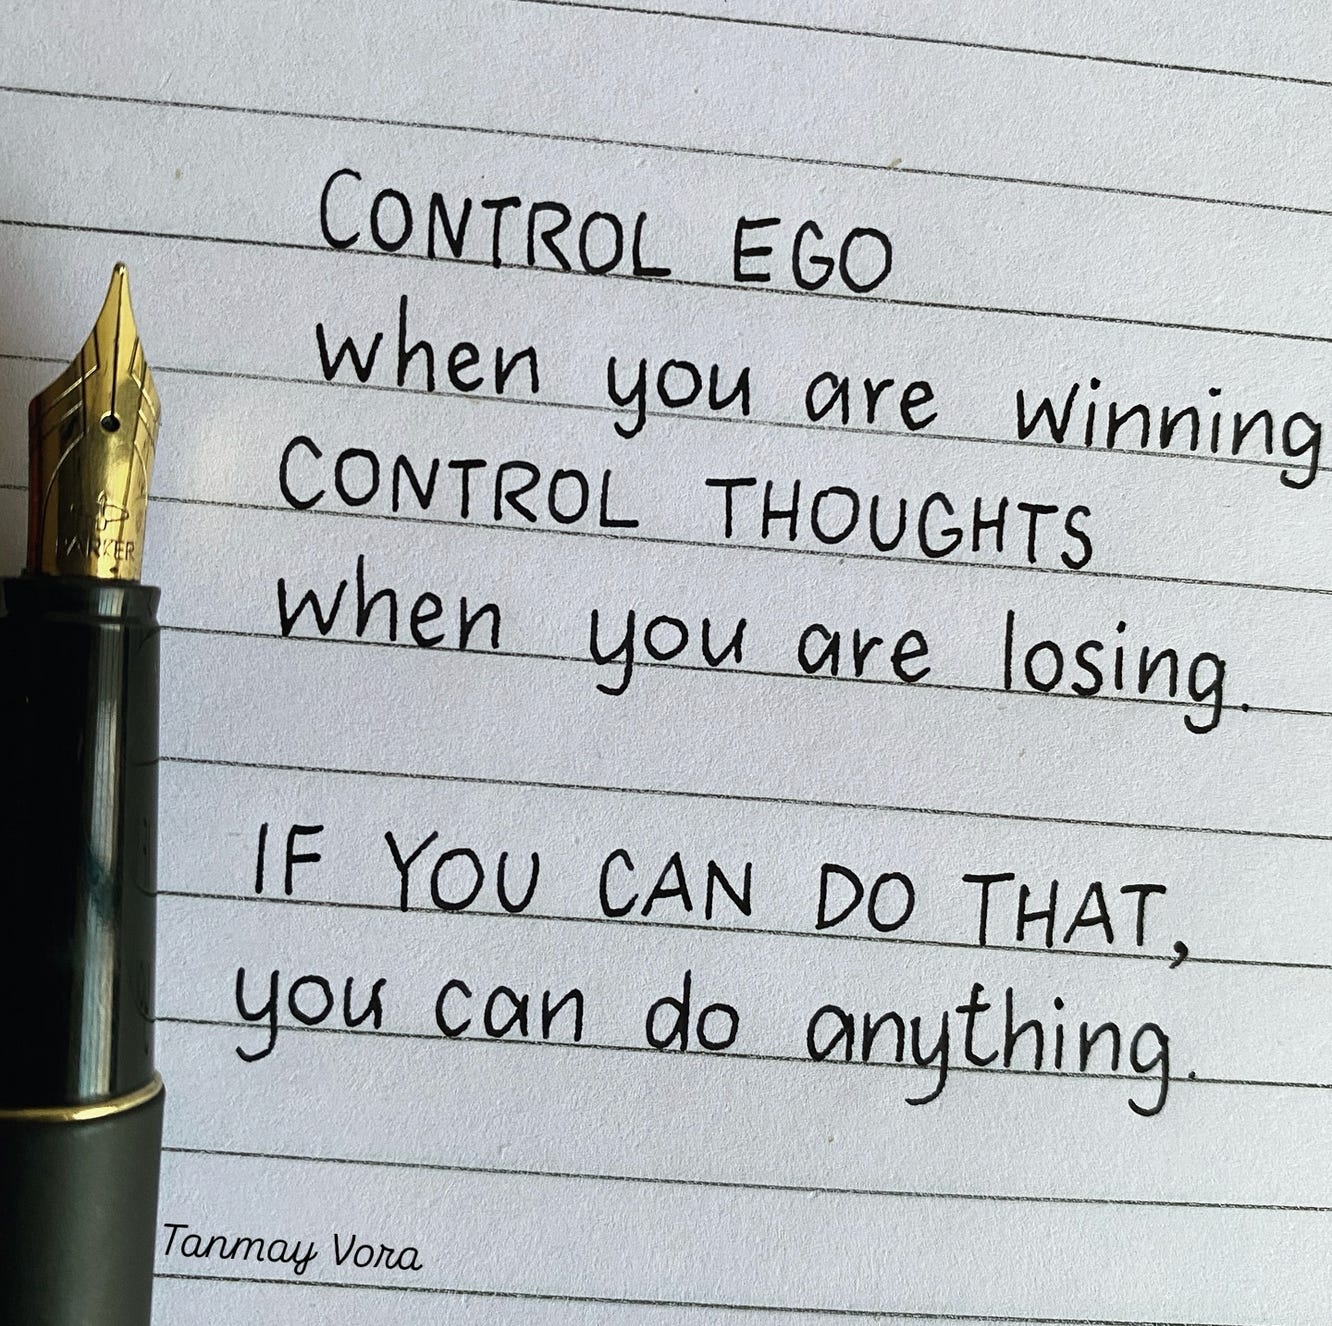 CONTROL EGO
when you are winning
CONTROL THOUGHTS
when you are losing.
IF YOU CAN DO THAT,
you can do anything.
PARKER
Tanmay Vora